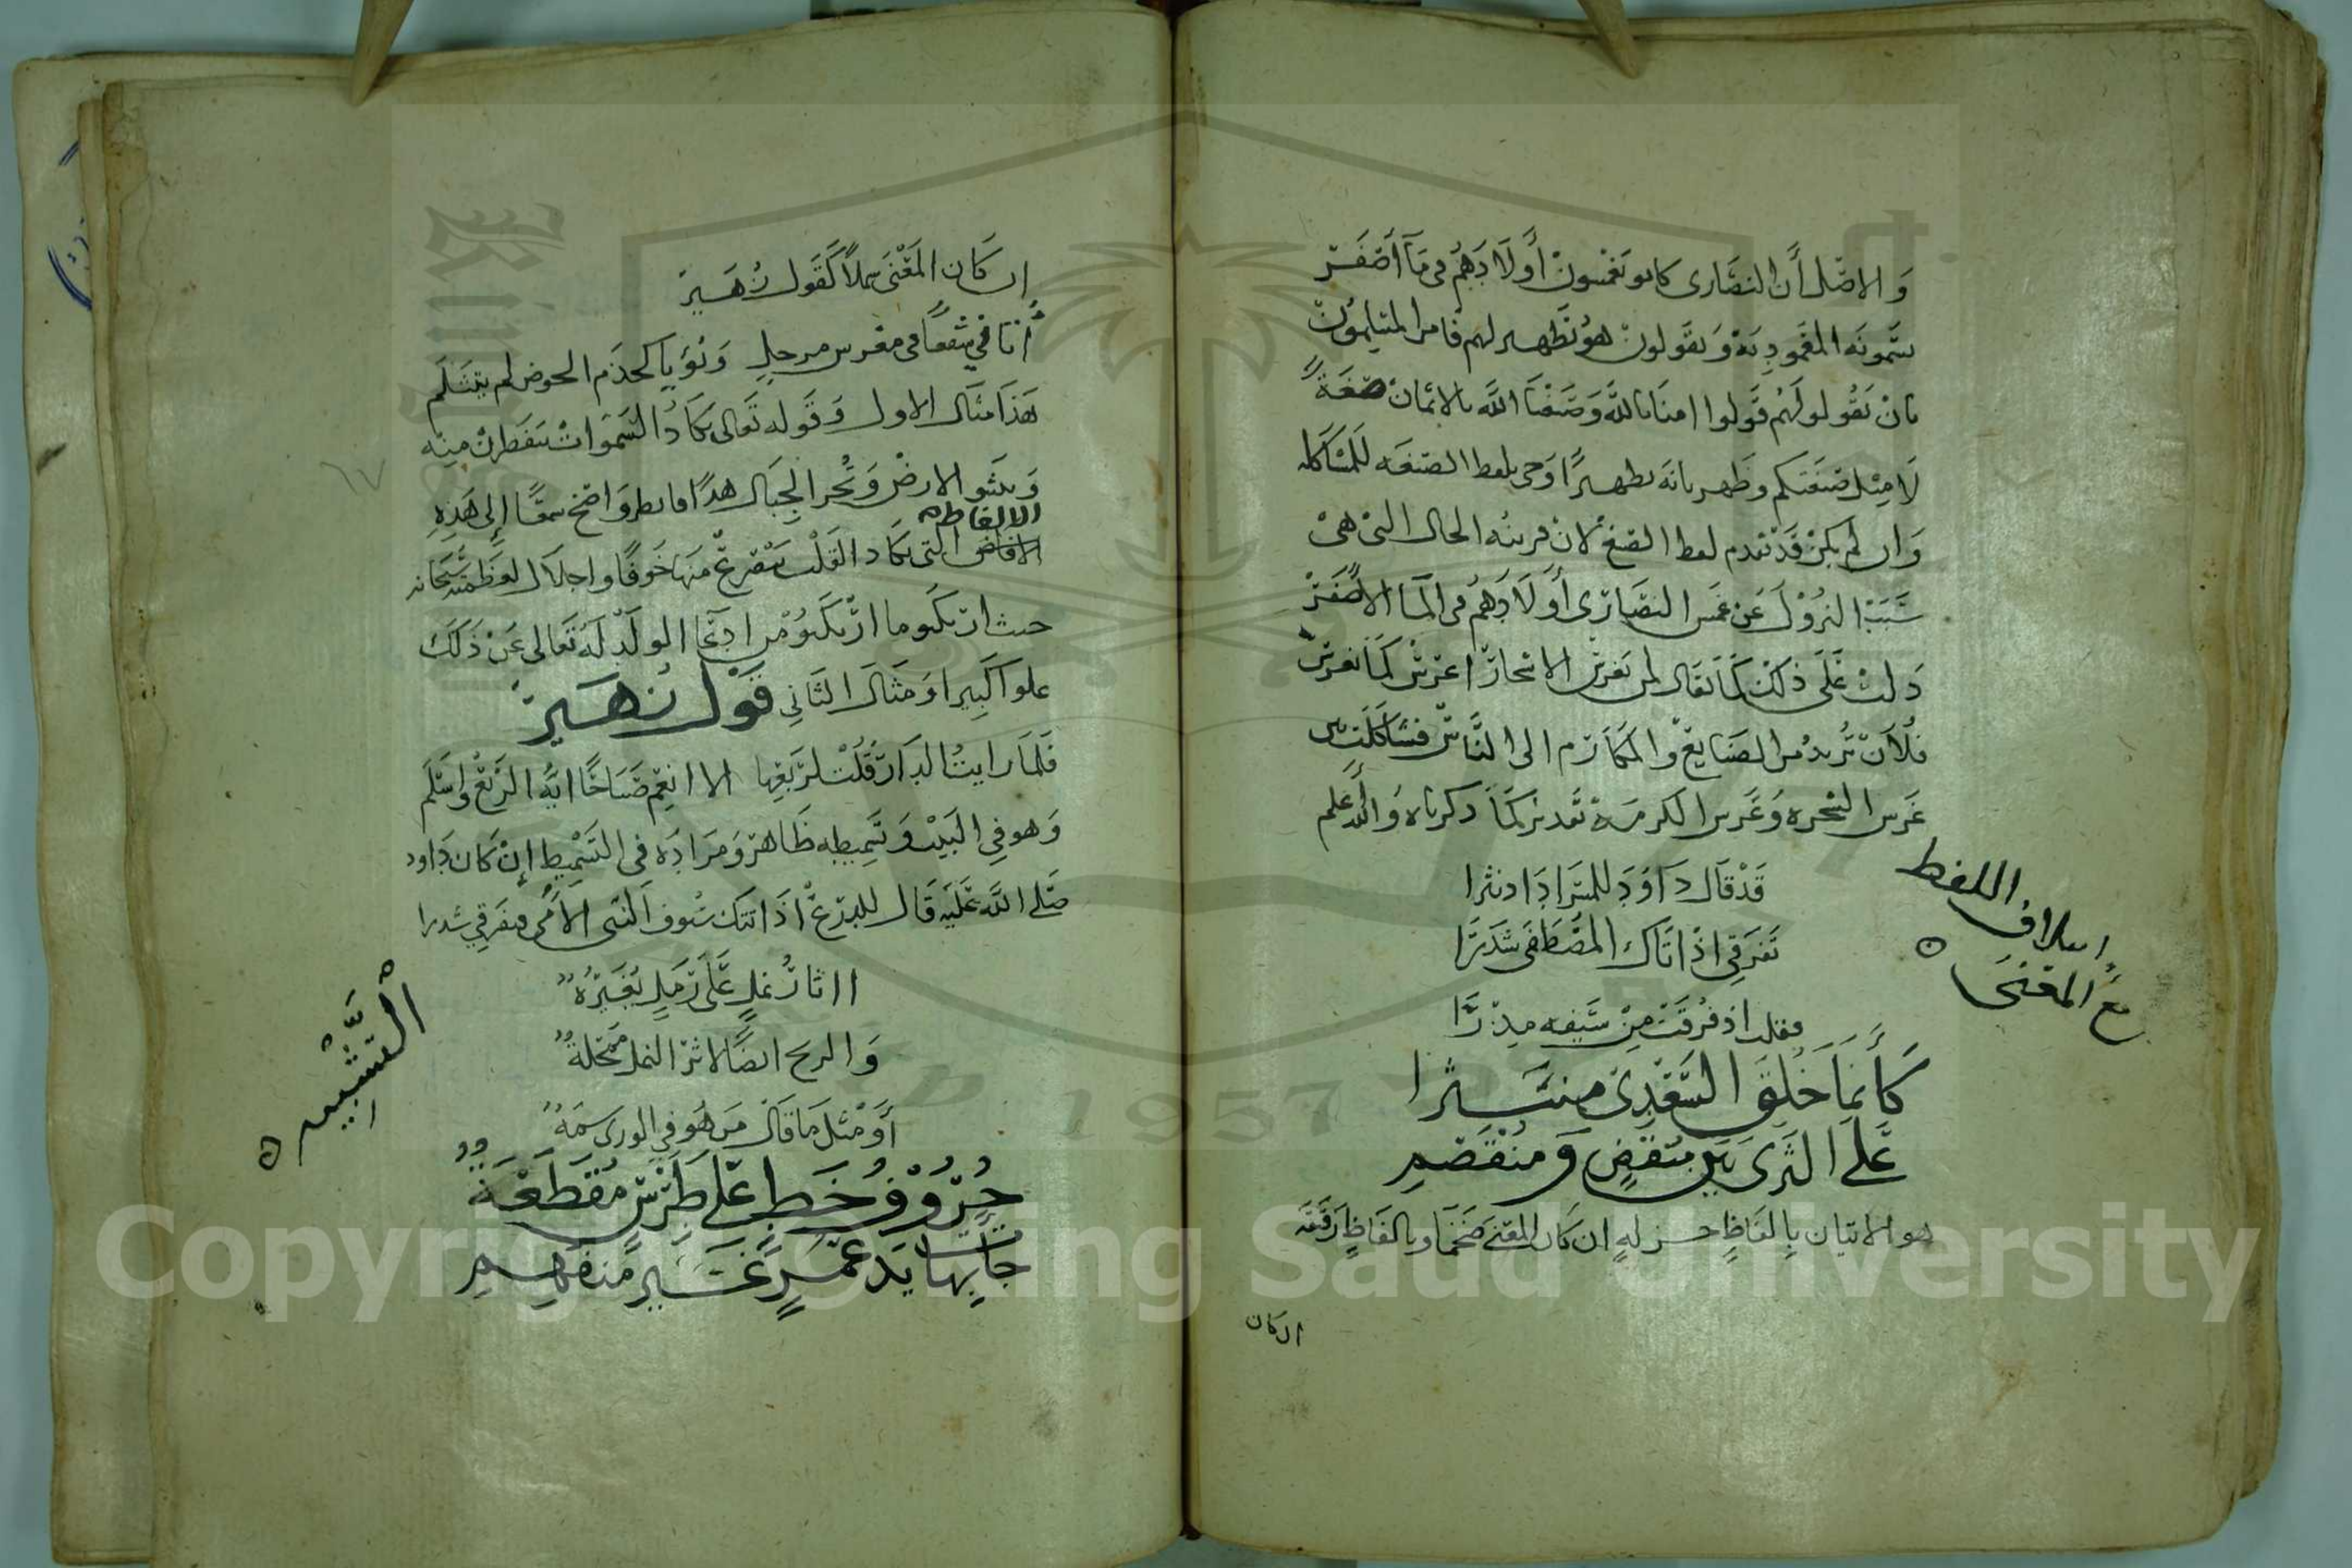 والاصل أن النصارى كانو يغمسون أولادهم في ماء أصفر
يسمونه المعمودية ويقولون هو تطهير لهم فامر المسلمون
بان يقولو لهم قولوا امنا بالله وصبغنا الله بالايمان صبغة
لا مثل صبغتكم وطهر بانه تطهيرا وجي بلفظ الصبغه للمشاكله
وان لم يكن قد تقدم لفظ الصبغ لان قرينه الحال التي هي
سبب النزول عن غمس النصارى أولادهم في الماء الأصفر
دلت على ذلك كما يقال لمن يغرس الاشجار اغرس كما يغرس
فلان تريد من الصنايع والمكارم الى الناس فشاكلت بين
غرس الشجره وغرس الكرم تقدير كما ذكرناه والله أعلم
إيتلاف اللفظ
مع المعنى
قد قال داود للسرادا دنثرا
تفرقي اذا تاك المصطفى شدرا
فقلت اذ فرقت من سيفه مدرا
كأنما خلق السعدي منتثرا
على الثرى بين منقض ومنقصم
هو الاتيان بالفاظ جزله ان كان المعنى ضخما وبالفاظ رققه
ان كان
ان كان المعنى سهلا كقول زهير
أثافي شفعا في معرس مرجل ونؤيا كحذم الحوض لم يتثلم
هذا مثال الاول وقوله تعالى تكاد السموات يتفطرن منه
وتنشق الارض وتخر الجبال هدا فانظر واضخ سمعا إلى هذه
الالفاظ
التي تكاد القلب يتصرع منها خوفا واجلال لعظمته سبحانه
حيث ارتكبوما ارتكبو من ادعا الولد له تعالى عن ذلك
علوا كبيرا ومثال الثاني قول زهير
فلما رايت الدار قلت لربعها الا انعم صباحا ايها الربع واسلم
وهو في البيت وتسميطه ظاهر ومراده في التسميط إن كان داود
صلى الله عليه قال للدرع اذا اتتك سيوف النبى الأمى فتفرقي شدرا
ااثار نمل على رمل يغيره
والريح ايضا لاثر النمل
أو مثل ما قال من هو في الورى سمه
حروف خط على طرس مقطعة
جات بها يد غمر غير منفهم
التشبيه